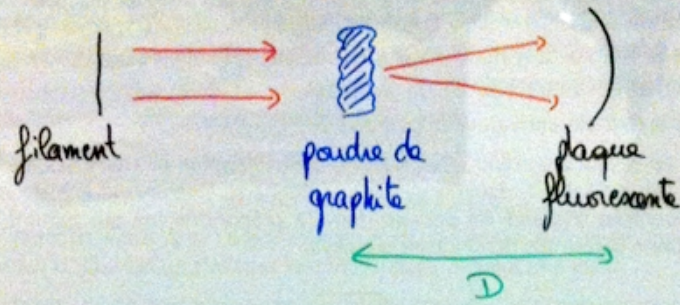 filament
poudre de
graphite
plaque
fluorescente
D